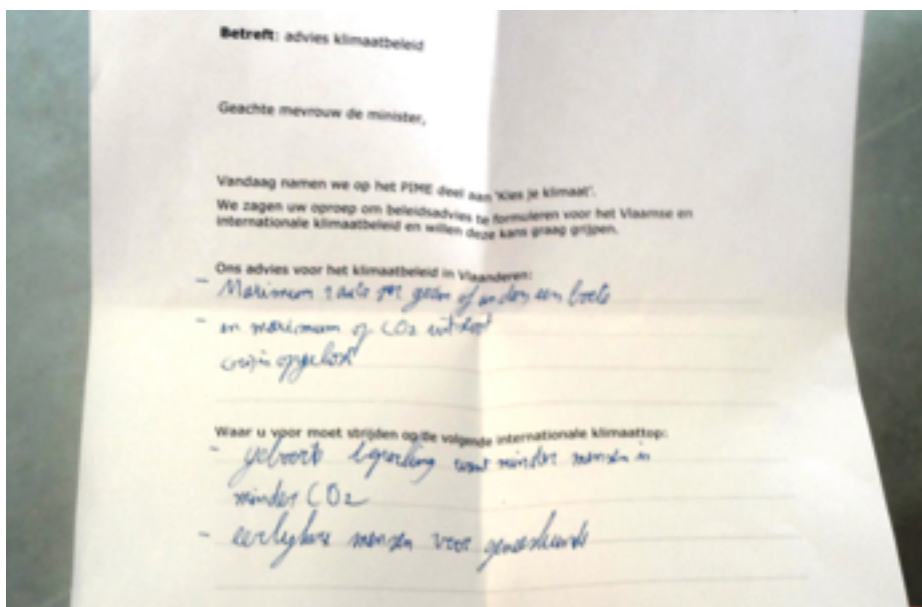 Betreft: advies klimaatbeleid
Geachte mevrouw de minister,
Vandaag namen we op het PIME deel aan 'Kies je klimaat'.
We zagen uw oproep om beleidsadvies te formuleren voor het Vlaamse en
internationale klimaatbeleid en willen deze kans graag grijpen.
Ons advies voor het klimaatbeleid in Vlaanderen:
- Maximum 1 auto per gezin of anders een boete
- en maximum of CO2 uitstoot
crisis opgelost
Waar u voor moet strijden op de volgende internationale klimaattop:
- geboorte beperking want minder mensen is
minder CO2
- eerlijkere mensen voor